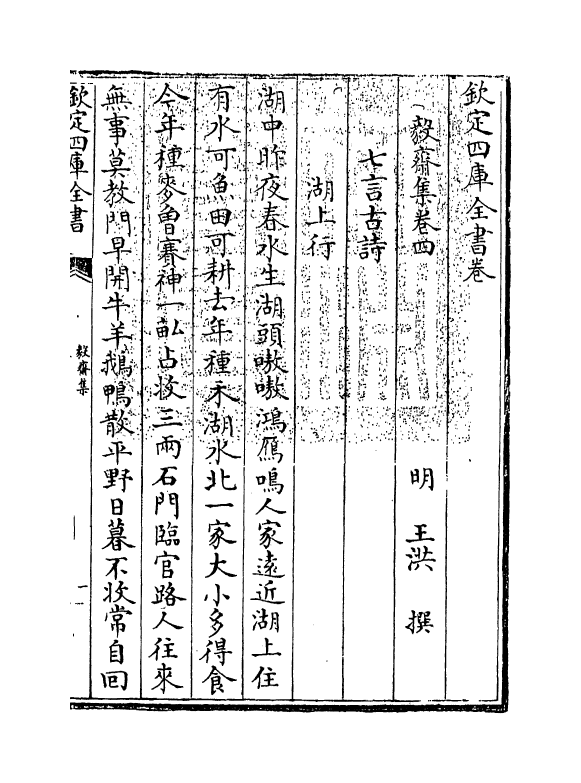 欽定四庫全書卷
毅齋集卷四
明 王洪 撰
七言古詩
湖上行
湖中昨夜春水生湖頭嗷嗷鴻鴈鳴人家遠近湖上住
有水可魚田可耕去年種禾湖水北一家大小多得食
今年種麥魯賽神一畝占收三兩石門臨官路人往來
無事莫教門早開牛羊鵝鴨散平野日暮不收常自回
欽定四庫全書
毅齋集
一